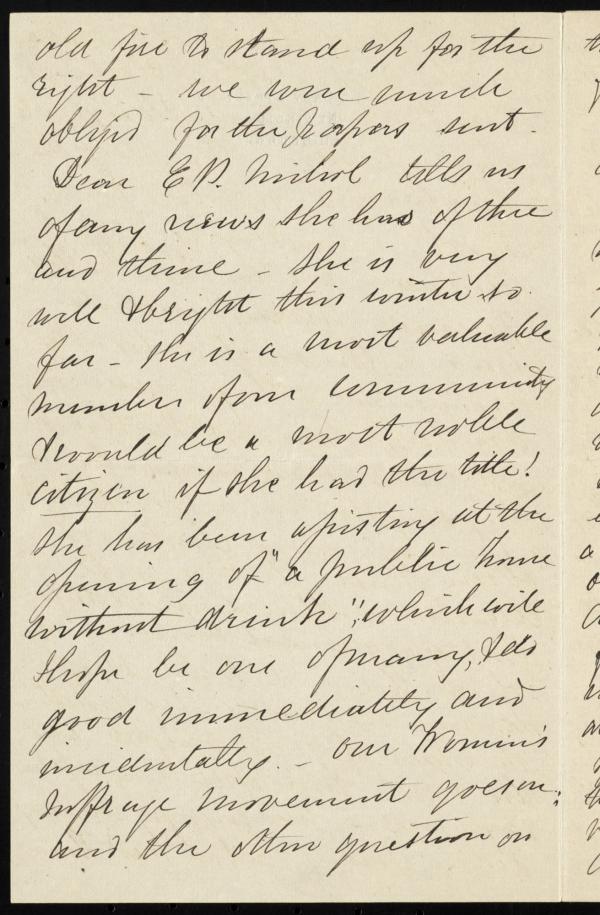 old fire to stand up for the
right – we were much
obliged for the papers sent.
Dear E P. Nichol tells us
of any news she has of thee
and thine – She is very
well & bright this winter so
far – She is a most valuable
member of our community
& would be a most noble
citizen if she had the title!
She has been assisting at the
opening of "a public home
without drink", which will
I hope be one of many, & do
good immediately and
incidentally. – Our Women's
Suffrage movement goes on;
and the other question on